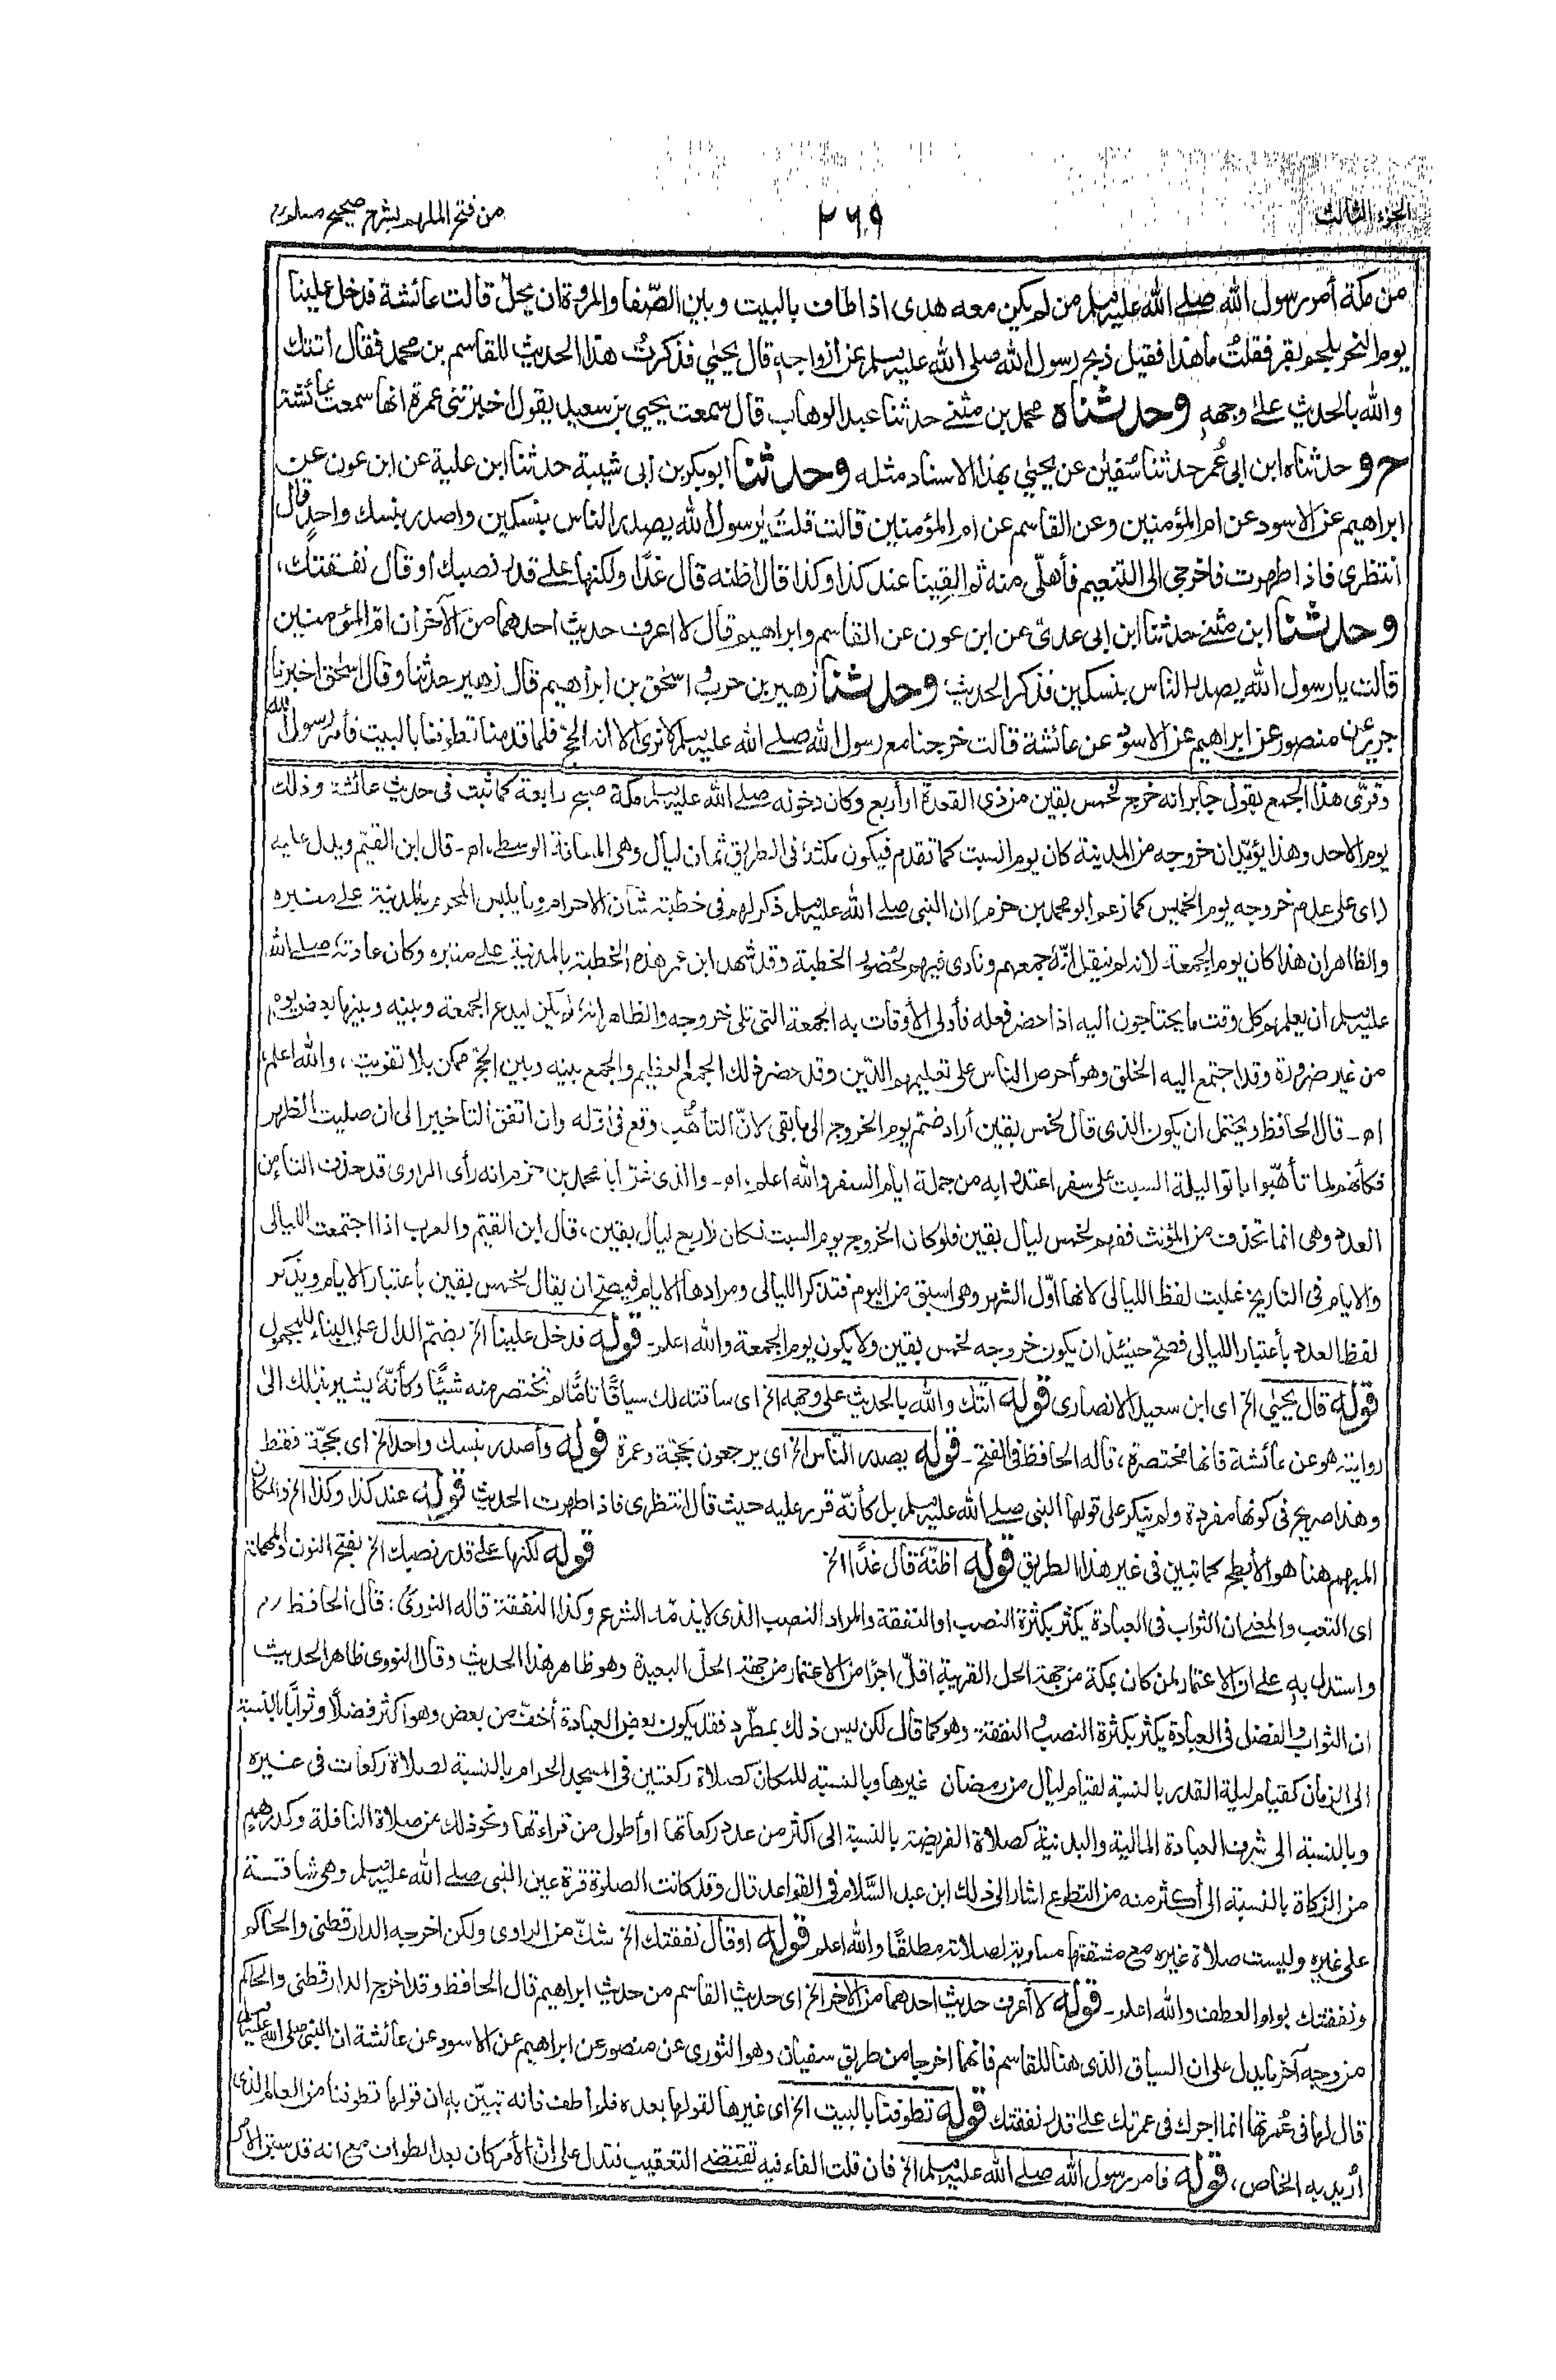 الجزء الثالث
٢٦٩
من فتح الملهم بشرح صحيح مسلم
من مكة أمر رسول الله صلى الله عليه وسلم من لم يكن معه هدى اذا طاف بالبيت وبين الصّفا والمروة ان يحلّ قالت عائشة فدخل علينا
يوم النحر بلحم بقر فقلتُ ما هذا فقيل ذبح رسول الله صلى الله عليه وسلم عن ازواجه قال يحيٰي فذكرتُ هذا الحديث للقاسم بن محمد فقال أتتك
والله بالحديث علىٰ وجهه وحدثناه محمد بن مثنى حدثنا عبد الوهاب قال سمعت يحيي بن سعيد يقول اخبرتنى عمرة انها سمعت عائشة
ح و حدثناه ابن ابى عُمر حدثنا سُفيٰن عن يحيٰي بهذا الاسناد مثله وحدثنا ابوبكر بن ابى شيبة حدثنا ابن علية عن ابن عون عن
ابراهيم عن الاسود عن ام المؤمنين وعن القاسم عن ام المؤمنين قالت قلتُ يٰرسول الله يصدر الناس بنسكين واصدر بنسك واحدٍ قال
انتظرى فاذا طهرت فاخرجى الى التنعيم فأهلّى منه ثم القِينا عند كذا وكذا قال اظنه قال غدًا ولكنها على قدر نصبك او قال نفقتك،
وحدثنا ابن مثنى حدثنا ابن ابى عدىّ عن ابن عون عن القاسم وابراهيم قال لا اعرف حديث احدهما من الآخر ان امّ المؤمنين
قالت يا رسول الله يصدر الناس بنسكين فذكر الحديث؛ وحدثنا زهير بن حرب و اسحٰق بن ابراهيم قال زهير حدثنا وقال اسحٰق اخبرنا
جرير عن منصور عن ابراهيم عن الاسود عن عائشة قالت خرجنا مع رسول الله صلى الله عليه وسلم لا نرى الا انه الحجّ فلما قدمنا تطوفنا بالبيت فأمر رسول الله
وقوّى هذا الجمع بقول جابر انه خرج لخمس بقين من ذى القعدة او أربع وكان دخوله صلى الله عليه وسلم مكة صبح رابعة كما ثبت فى حديث عائشة وذلك
يوم الاحد وهذا يؤيّد ان خروجه من المدينة كان يوم السبت كما تقدم فيكون مكثه فى الطريق ثمان ليال وهى المسافة الوسطى، اھ- قال ابن القيّم ويدل عليه
(اى على عدم خروجه يوم الخميس كما زعم ابو محمد بن حزم) ان النبى صلى الله عليه وسلم ذكر لهم فى خطبته شأن الاحرام وما يلبس المحرم بالمدينة على منبره
والظاهر ان هذا كان يوم الجمعة، لانه لم ينقل انّه جمعهم ونادى فيهم لحضور الخطبة وقد شهد ابن عمر هذه الخطبة بالمدينة على منبره وكان عادته صلى الله
عليه وسلم ان يعلمهم كل وقت ما يحتاجون اليه اذا حضر فعله فأولى الأوقات به الجمعة التى تلى خروجه والظاهر انه لم يكن ليدع الجمعة وبينه وبينها بعض يوم
من غير ضرورة وقد اجتمع اليه الخلق وهو أحرص الناس على تعليمهم الدّين وقد حضر ذلك الجمع العظيم والجمع بينه وبين الحج ممكن بلا تفويت، والله اعلم،
اھ- قال الحافظ ويحتمل ان يكون الذى قال لخمس بقين أراد ضم يوم الخروج الى ما بقى لانّ التأهّب وقع فى اوّله وان اتفق التأخير الى ان صليت الظهر
فكأنهم لما تأهّبوا باتوا ليلة السبت على سفر اعتدوا به من جملة ايام السفر والله اعلم، اھ- والذى غرّ ابا محمد بن حزم انه رأى الراوى قد حذف التاء من
العدد وهى انما تحذف من المؤنث ففهم لخمس ليال بقين فلو كان الخروج يوم السبت لكان لاربع ليال بقين، قال ابن القيّم والعرب اذا اجتمعت الليالى
والايام فى التاريخ غلبت لفظ الليالى لانها اوّل الشهر وهى اسبق من اليوم فتذكر الليالى ومرادها الايام فيصح ان يقال لخمس بقين بأعتبار الايام ويذكر
لفظ العدد بأعتبار الليالى فصح حينئذ ان يكون خروجه لخمس بقين ولا يكون يوم الجمعة والله اعلم- قوله فدخل علينا الخ بضمّ الدال على البناء للمجهول
قوله قال يحيٰي الخ اى ابن سعيد الانصارى قوله اتتك والله بالحديث على وجهه الخ اى ساقته لك سياقًا تامًّا لم تختصر منه شيئًا وكأنّه يشير بذلك الى
روايته هو عن عائشة فانها مختصرة، قاله الحافظ فى الفتح- قوله يصدر النّاس الخ اى يرجعون بحجّة وعمرة قوله وأصدر بنسك واحد الخ اى بحجّة فقط
وهذا صريح فى كونها مفردة ولم ينكر على قولها النبى صلى الله عليه وسلم بل كأنّه قرر عليه حيث قال انتظرى فاذا طهرت الحديث قوله عند كذا وكذا الخ والمكان
المبهم هنا هو الأبطح كما تبين فى غير هذا الطريق قوله اظنّهٗ قال غدًا الخ قوله لكنها على قدر نصبك الخ بفتح النون والمهملة
اى التعب والمعنى ان الثواب فى العبادة يكثر بكثرة النصب او النفقة والمراد النصب الذى لا يذمّه الشرع وكذا النفقة قاله النووىؒ: قال الحافظ رم
واستدل به على ان الاعتمار لمن كان بمكة من جهة الحل القريبة اقلّ اجرًا من الاعتمار من جهة الحلّ البعيدة وهو ظاهر هذا الحديث وقال النووى ظاهر الحديث
ان الثواب والفضل فى العبادة يكثر بكثرة النصب والنفقة، وهو كما قال لكن ليس ذلك بمطّرد فقد يكون بعض العبادة أخفّ من بعض وهو اكثر فضلًا وثوابًا بالنسبة
الى الزمان كقيام ليلة القدر بالنسبة لقيام ليال من رمضان غيرها وبالنسبة للمكان كصلاة ركعتين فى المسجد الحرام بالنسبة لصلاة ركعات فى غيره
وبالنسبة الى شرف العبادة المالية والبدنية كصلاة الفريضة بالنسبة الى اكثر من عدد ركعاتها او أطول من قراءتها ونحو ذلك من صلاة النافلة وكدرهم
من الزكاة بالنسبة الى أكثر منه من التطوع اشار الى ذلك ابن عبد السّلام فى القواعد قال وقد كانت الصلوٰة قرة عين النبى صلى الله عليه وسلم وهى شاقة
على غيره وليست صلاة غيره مع مشقتها مساوية لصلاته مطلقًا والله اعلم قوله او قال نفقتك الخ شكّ من الراوى ولكن اخرجه الدارقطنى والحاكم
ونفقتك بواو العطف والله اعلم- قوله لا أعرف حديث احدهما من الآخر الخ اى حديث القاسم من حديث ابراهيم قال الحافظ وقد اخرج الدارقطنى والحاكم
من وجه آخر ما يدل على ان السياق الذى هنا للقاسم فانهما اخرجا من طريق سفيان وهو الثورى عن منصور عن ابراهيم عن الاسود عن عائشة ان النبى صلى الله عليه وسلم
قال لها فى عُمرتها انما اجرك فى عمرتك علىٰ قدر نفقتك قوله تطوفنا بالبيت الخ اى غيرها لقولها بعده فلم اطف فانه تبيّن به ان قولها تطوفنا من العام الذى
أريد به الخاص، قوله فامر رسول الله صلى الله عليه وسلم الخ فان قلت الفاء فيه تقتضى التعقيب فتدل على انّ الأمر كان بعد الطواف مع انه قد سبق الأمر